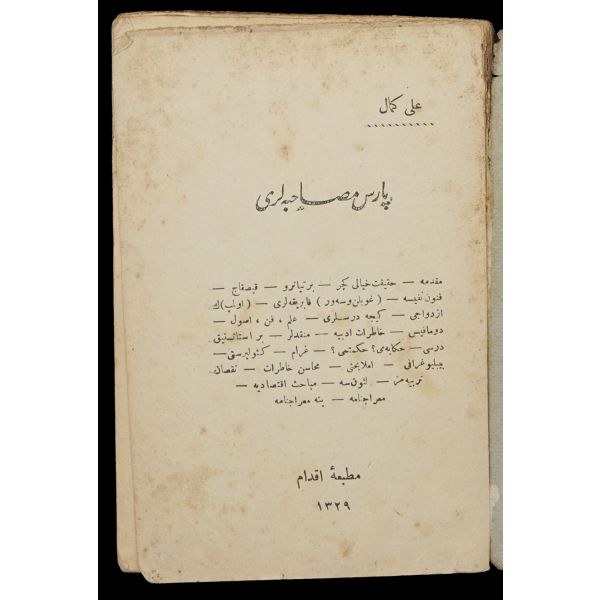 علی كمال
پارس مصاحبه لری
مقدمه — حقیقت خیالی كچر — بر تیاترو — قیصقاج —
فنون نفیسه — (غوبلن وسه ور) فابریقه لری — (اولمپ) ك
ازدواجی — كیجه درسلری — علم ، فن ، اصول —
دومافیس — خاطرات ادبیه — منقدلر — بر استاتستیق
درسی — حكایه می؟ حكمتمی؟ — غرام — كئولپرستی —
بیبلیوغرافی — املا بحثی — محاسن خاطرات — نقصان
تربیه مز — لئون سه — مباحث اقتصادیه —
معراجنامه — ینه معراجنامه
مطبعۀ اقدام
١٣٢٩